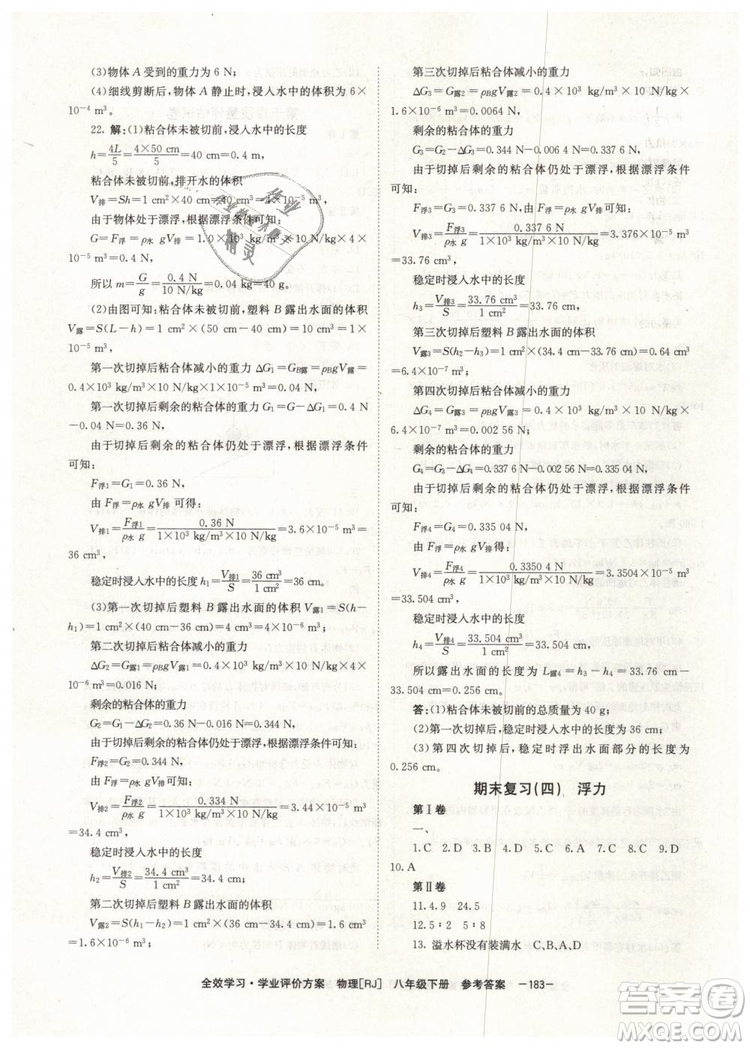 (3)物体 A 受到的重力为 6 N;
(4)细线剪断后,物体稳定时,浸入水中的体积为 6×
10⁻⁴ m³.
22. 解:(1)粘合体未被切前,浸入水中的长度
h=4L/5=4×50 cm/5=40 cm=0.4 m,
粘合体未被切前,排开水的体积
V排=Sh=1 cm²×40 cm=40 cm³
由于物体处于漂浮,根据漂浮条件可知:
G=F浮=ρ水 gV排=1.0×
所以 m=G/g=0.4 N/10 N/kg=0.04 kg=40 g.
(2)由图可知:被切前,塑料 B 露出水面的体积
V露=S(L-h)=1 cm²×(50 cm-40 cm)=10 cm³
第一次切掉后粘合体减小的重力 ΔG₁=GB露=
0.4×10³ kg/m³×10 N/kg×1×10⁻⁵ m³=0.04 N,
第一次切掉后剩余的粘合体的重力 G₁=G-ΔG₁=0.4 N
-0.04 N=0.36 N,
由于切掉后剩余的粘合体仍处于漂浮,根据漂浮条件
可知:
F浮1=G₁=0.36 N,
由 F浮=ρ水 gV排 可得:
V排1=F浮1/ρ水g=0.36 N/1×10³ kg/m³×10 N/kg=3.6×10⁻⁵ m³=
36 cm³,
稳定时浸入水中的长度 h₁=V排1/S=36 cm³/1 cm²=36 cm.
(3)第一次切掉后塑料 B 露出水面的体积 V露1=S(h-
h₁)=1 cm²×(40 cm-36 cm)=4 cm³=4×10⁻⁶ m³
第二次切掉后粘合体减小的重力
ΔG₂=G露1=0.4×10³ kg/m³×10 N/kg×4×10⁻⁶ m³
=0.016 N,
剩余的粘合体的重力
G₂=G₁-ΔG₂=0.36 N-0.016 N=0.344 N
由于切掉后剩余的粘合体仍处于漂浮,根据漂浮条件
可知:
F浮2=G₂=0.344 N,
由 F浮=ρ水 gV排 可得:
V排2=F浮2/ρ水g=0.344 N/1×10³ kg/m³×10 N/kg=3.44×10⁻⁵ m³
=34.4 cm³,
稳定时浸入水中的长度
h₂=V排2/S=34.4 cm³/1 cm²=34.4 cm,
第二次切掉后塑料 B 露出水面的体积
V露2=S(h₁-h₂)=1 cm²×(36 cm-34.4 cm)=1.6 cm³
=1.6×10⁻⁶ m³,
第三次切掉后粘合体减小的重力
ΔG₃=G露2=0.4×10³ kg/m³×10 N/kg×
1.6×10⁻⁶ m³=0.006 4 N,
剩余的粘合体的重力
G₃=G₂-ΔG₃=0.344 N-0.006 4 N=0.337 6 N
由于切掉后剩余的粘合体仍处于漂浮,根据漂浮条件
可知:
F浮3=G₃=0.337 6 N,
由 F浮=ρ水 gV排 可得:
V排3=F浮3/ρ水g=0.337 6 N/1×10³ kg/m³×10 N/kg=3.376×10⁻⁵ m³
=33.76 cm³,
稳定时浸入水中的长度
h₃=V排3/S=33.76 cm³/1 cm²=33.76 cm,
第三次切掉后塑料 B 露出水面的体积
V露3=S(h₂-h₃)=1 cm²×(34.4 cm-33.76 cm)=0.64 cm³=
6.4×10⁻⁷ m³,
第四次切掉后粘合体减小的重力
ΔG₄=G露3=0.4×10³ kg/m³×10 N/kg×
6.4×10⁻⁷ m³=0.002 56 N,
剩余的粘合体的重力
G₄=G₃-ΔG₄=0.337 6 N-0.002 56 N=0.335 04 N
由于切掉后剩余的粘合体仍处于漂浮,根据漂浮条件
可知:
F浮4=G₄=0.335 04 N,
由 F浮=ρ水 gV排 可得:
V排4=F浮4/ρ水g=0.3350 4 N/1×10³ kg/m³×10 N/kg=3.3504×10⁻⁵ m³
=33.504 cm³,
稳定时浸入水中的长度
h₄=V排4/S=33.504 cm³/1 cm²=33.504 cm,
所以露出水面的长度 L露4=h₃-h₄=33.76 cm-
33.504 cm=0.256 cm.
答:(1)粘合体未被切前的总质量为 40 g;
(2)第一次切掉后,稳定时浸入水中的长度为 36 cm;
(3)第四次切掉后,稳定时浮出水面部分的长度为
0.256 cm.
期末复习(四) 浮力
第Ⅰ卷
一、
1.C 2.D 3.C 4.D 5.C 6.A 7.C 8.C 9.D
10.A
第Ⅱ卷
11.4.9 24.5
12.5∶2 5∶8
13. 溢水杯没有装满水 C、B、A、D
全效学习·学业评价方案 物理[RJ] 八年级下册 参考答案 —183—
作业
精灵
MXQE.COM